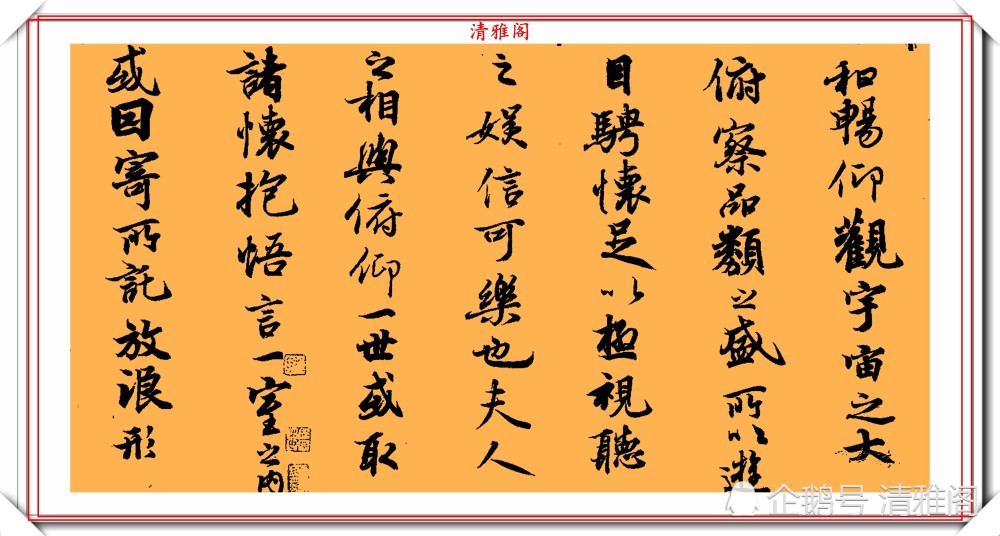 清雅阁
和暢仰觀宇宙之大
俯察品類之盛所以遊
目騁懷足以極視聽
之娱信可樂也夫人
之相與俯仰一世或取
諸懷抱悟言一室之内
或因寄所託放浪形
企鹅号 清雅阁